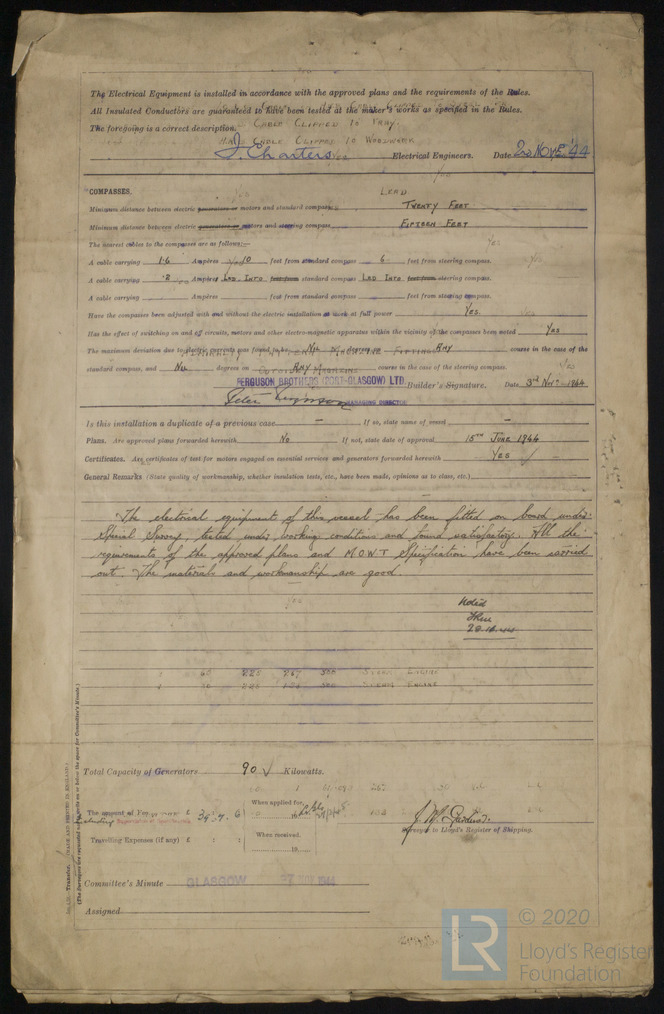 The Electrical Equipment is installed in accordance with the approved plans and the requirements of the Rules.
All Insulated Conductors are guaranteed to have been tested at the maker's works as specified in the Rules.
The foregoing is a correct description.
J. Charters Electrical Engineers. Date 2nd Nov. '44
COMPASSES.
Minimum distance between electric generators or motors and standard compass TWENTY FEET
Minimum distance between electric generators or motors and steering compass FIFTEEN FEET
The nearest cables to the compasses are as follows:—
A cable carrying 1.6 Ampères 10 feet from standard compass 6 feet from steering compass.
A cable carrying .2 Ampères LED INTO feet from standard compass LED INTO feet from steering compass.
A cable carrying Ampères feet from standard compass feet from steering compass.
Have the compasses been adjusted with and without the electric installation at work at full power Yes.
Has the effect of switching on and off circuits, motors and other electro-magnetic apparatus within the vicinity of the compasses been noted Yes
The maximum deviation due to electric currents was found to be Nil degrees on Any course in the case of the
standard compass, and Nil degrees on Any course in the case of the steering compass.
FERGUSON BROTHERS (PORT-GLASGOW) LTD. Builder's Signature. Date 3rd Nov. 1944
Peter Ferguson MANAGING DIRECTOR
Is this installation a duplicate of a previous case — If so, state name of vessel —
Plans. Are approved plans forwarded herewith No If not, state date of approval 15TH JUNE 1944
Certificates. Are certificates of test for motors engaged on essential services and generators forwarded herewith Yes ✓
General Remarks (State quality of workmanship, whether insulation tests, etc., have been made, opinions as to class, etc.)
The electrical equipment of this vessel has been fitted on board under
Special Survey, tested under working conditions and found satisfactory. All the
requirements of the approved plans and M.O.W.T Specification have been carried
out. The materials and workmanship are good.
Noted
Total Capacity of Generators 90 ✓ Kilowatts.
The amount of Fee £ 39 : 7 : 6 When applied for,
Surveyor to Lloyd's Register of Shipping.
Travelling Expenses (if any) £ : : When received,
19
Committee's Minute GLASGOW 27 NOV 1944
Assigned
(The Surveyors are requested not to write on or below the space for Committee's Minute.)
(MADE AND PRINTED IN ENGLAND.)
Transfer.
LR
© 2020
Lloyd's Register
Foundation